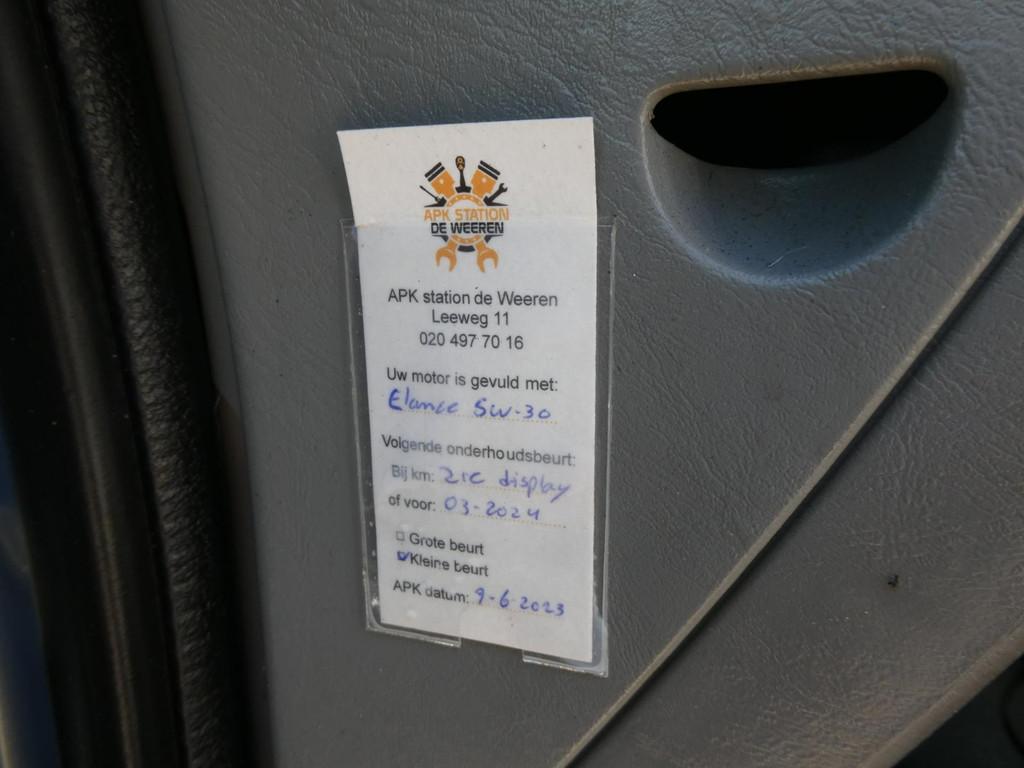 APK STATION
DE WEEREN
APK station de Weeren
Leeweg 11
020 497 70 16
Uw motor is gevuld met:
Elance 5w-30
Volgende onderhoudsbeurt:
Bij km: zie display
of voor: 03-2024
Grote beurt
Kleine beurt
APK datum: 9-6-2023